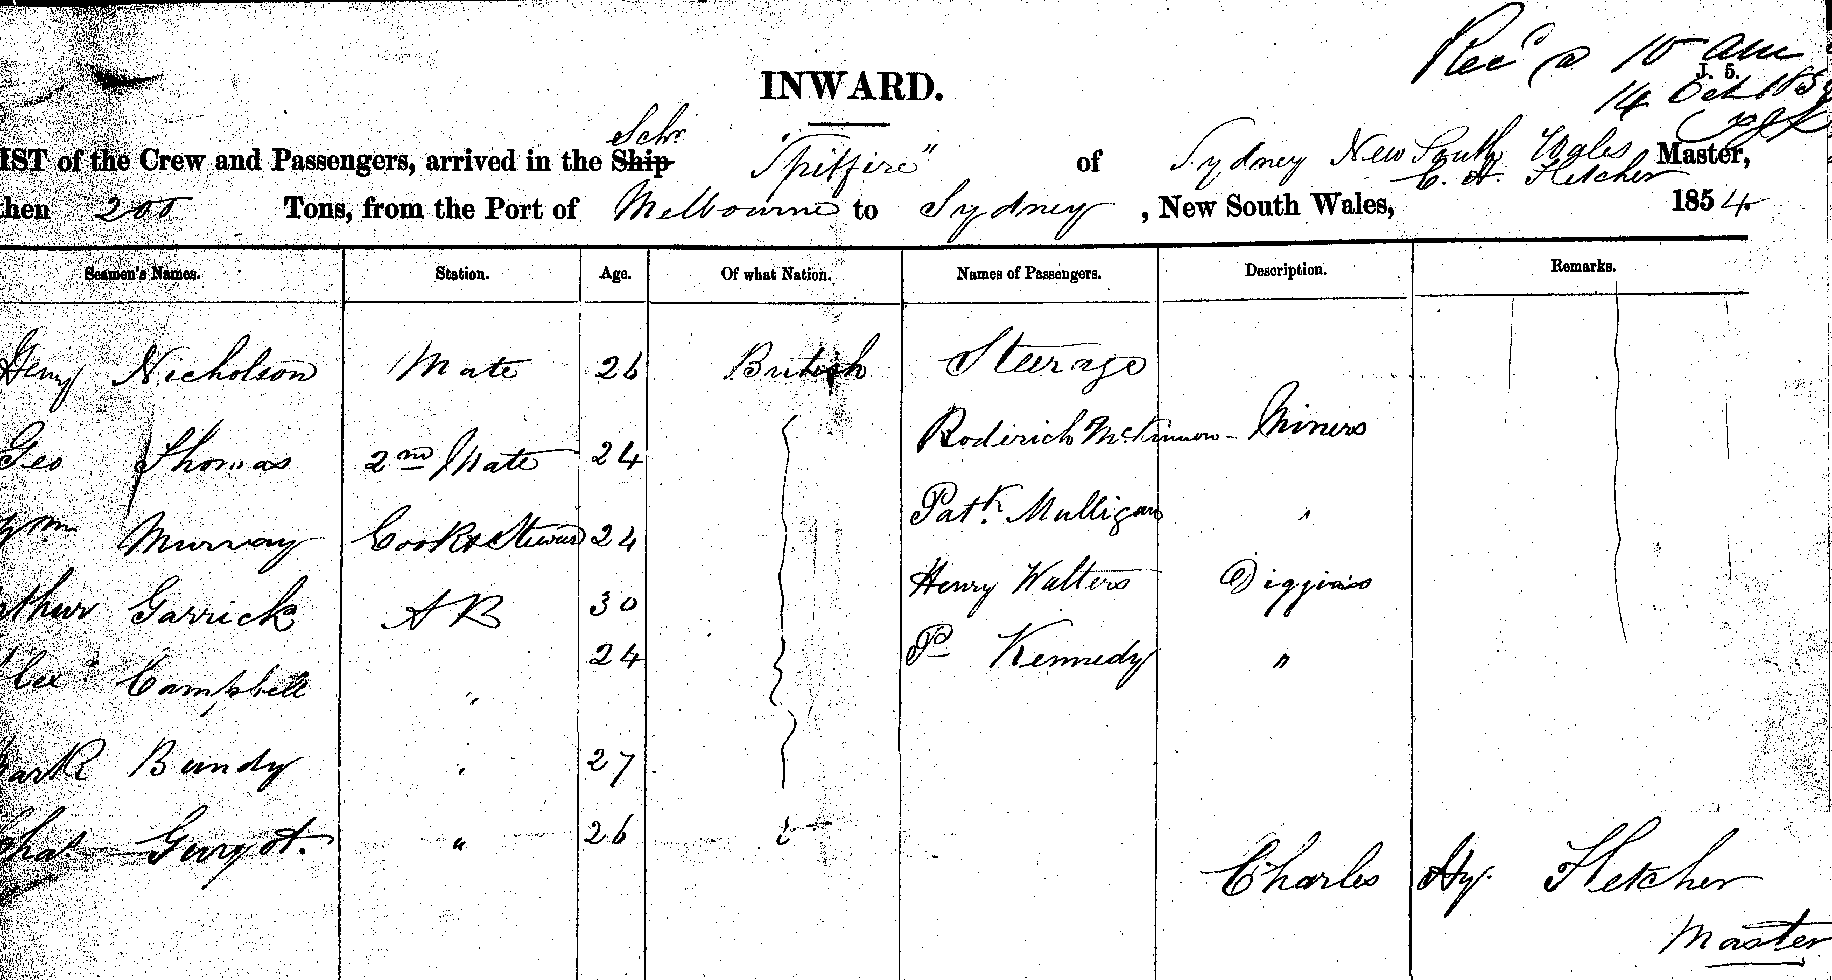 Rec'd @ 10 am
J. 5.
14 Oct 185
INWARD.
Schr.
IST of the Crew and Passengers, arrived in the Ship "Spitfire" of Sydney New South Wales Master,
C. H. Fletcher
hen 200 Tons, from the Port of Melbourne to Sydney, New South Wales, 1854.
Seamen's Names. Station. Age. Of what Nation. Names of Passengers. Description. Remarks.
Henry Nicholson Mate 26 British Steerage
Roderich McKinnon - Miners
Geo Thomas 2nd Mate 24
Patk. Mulligan "
Wm Murray Cook & Steward 24
Henry Walters Diggins
thur Garrick AB 30
24 Pd Kennedy "
Campbell "
ark Bundy " 27
Chas " 26
Charles Hy. Fletcher
Master